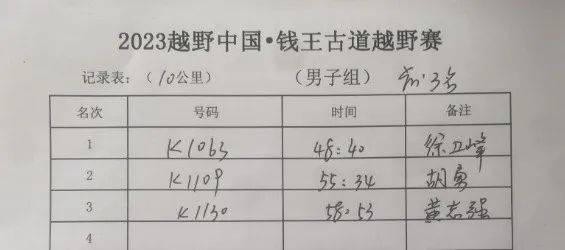 2023越野中国•钱王古道越野赛
记录表：（10公里） （男子组） 前3名
名次 号码 时间 备注
1 K1063 48:40 徐卫峰
2 K1109 55:34 胡勇
3 K1130 58:53 黄志强
4